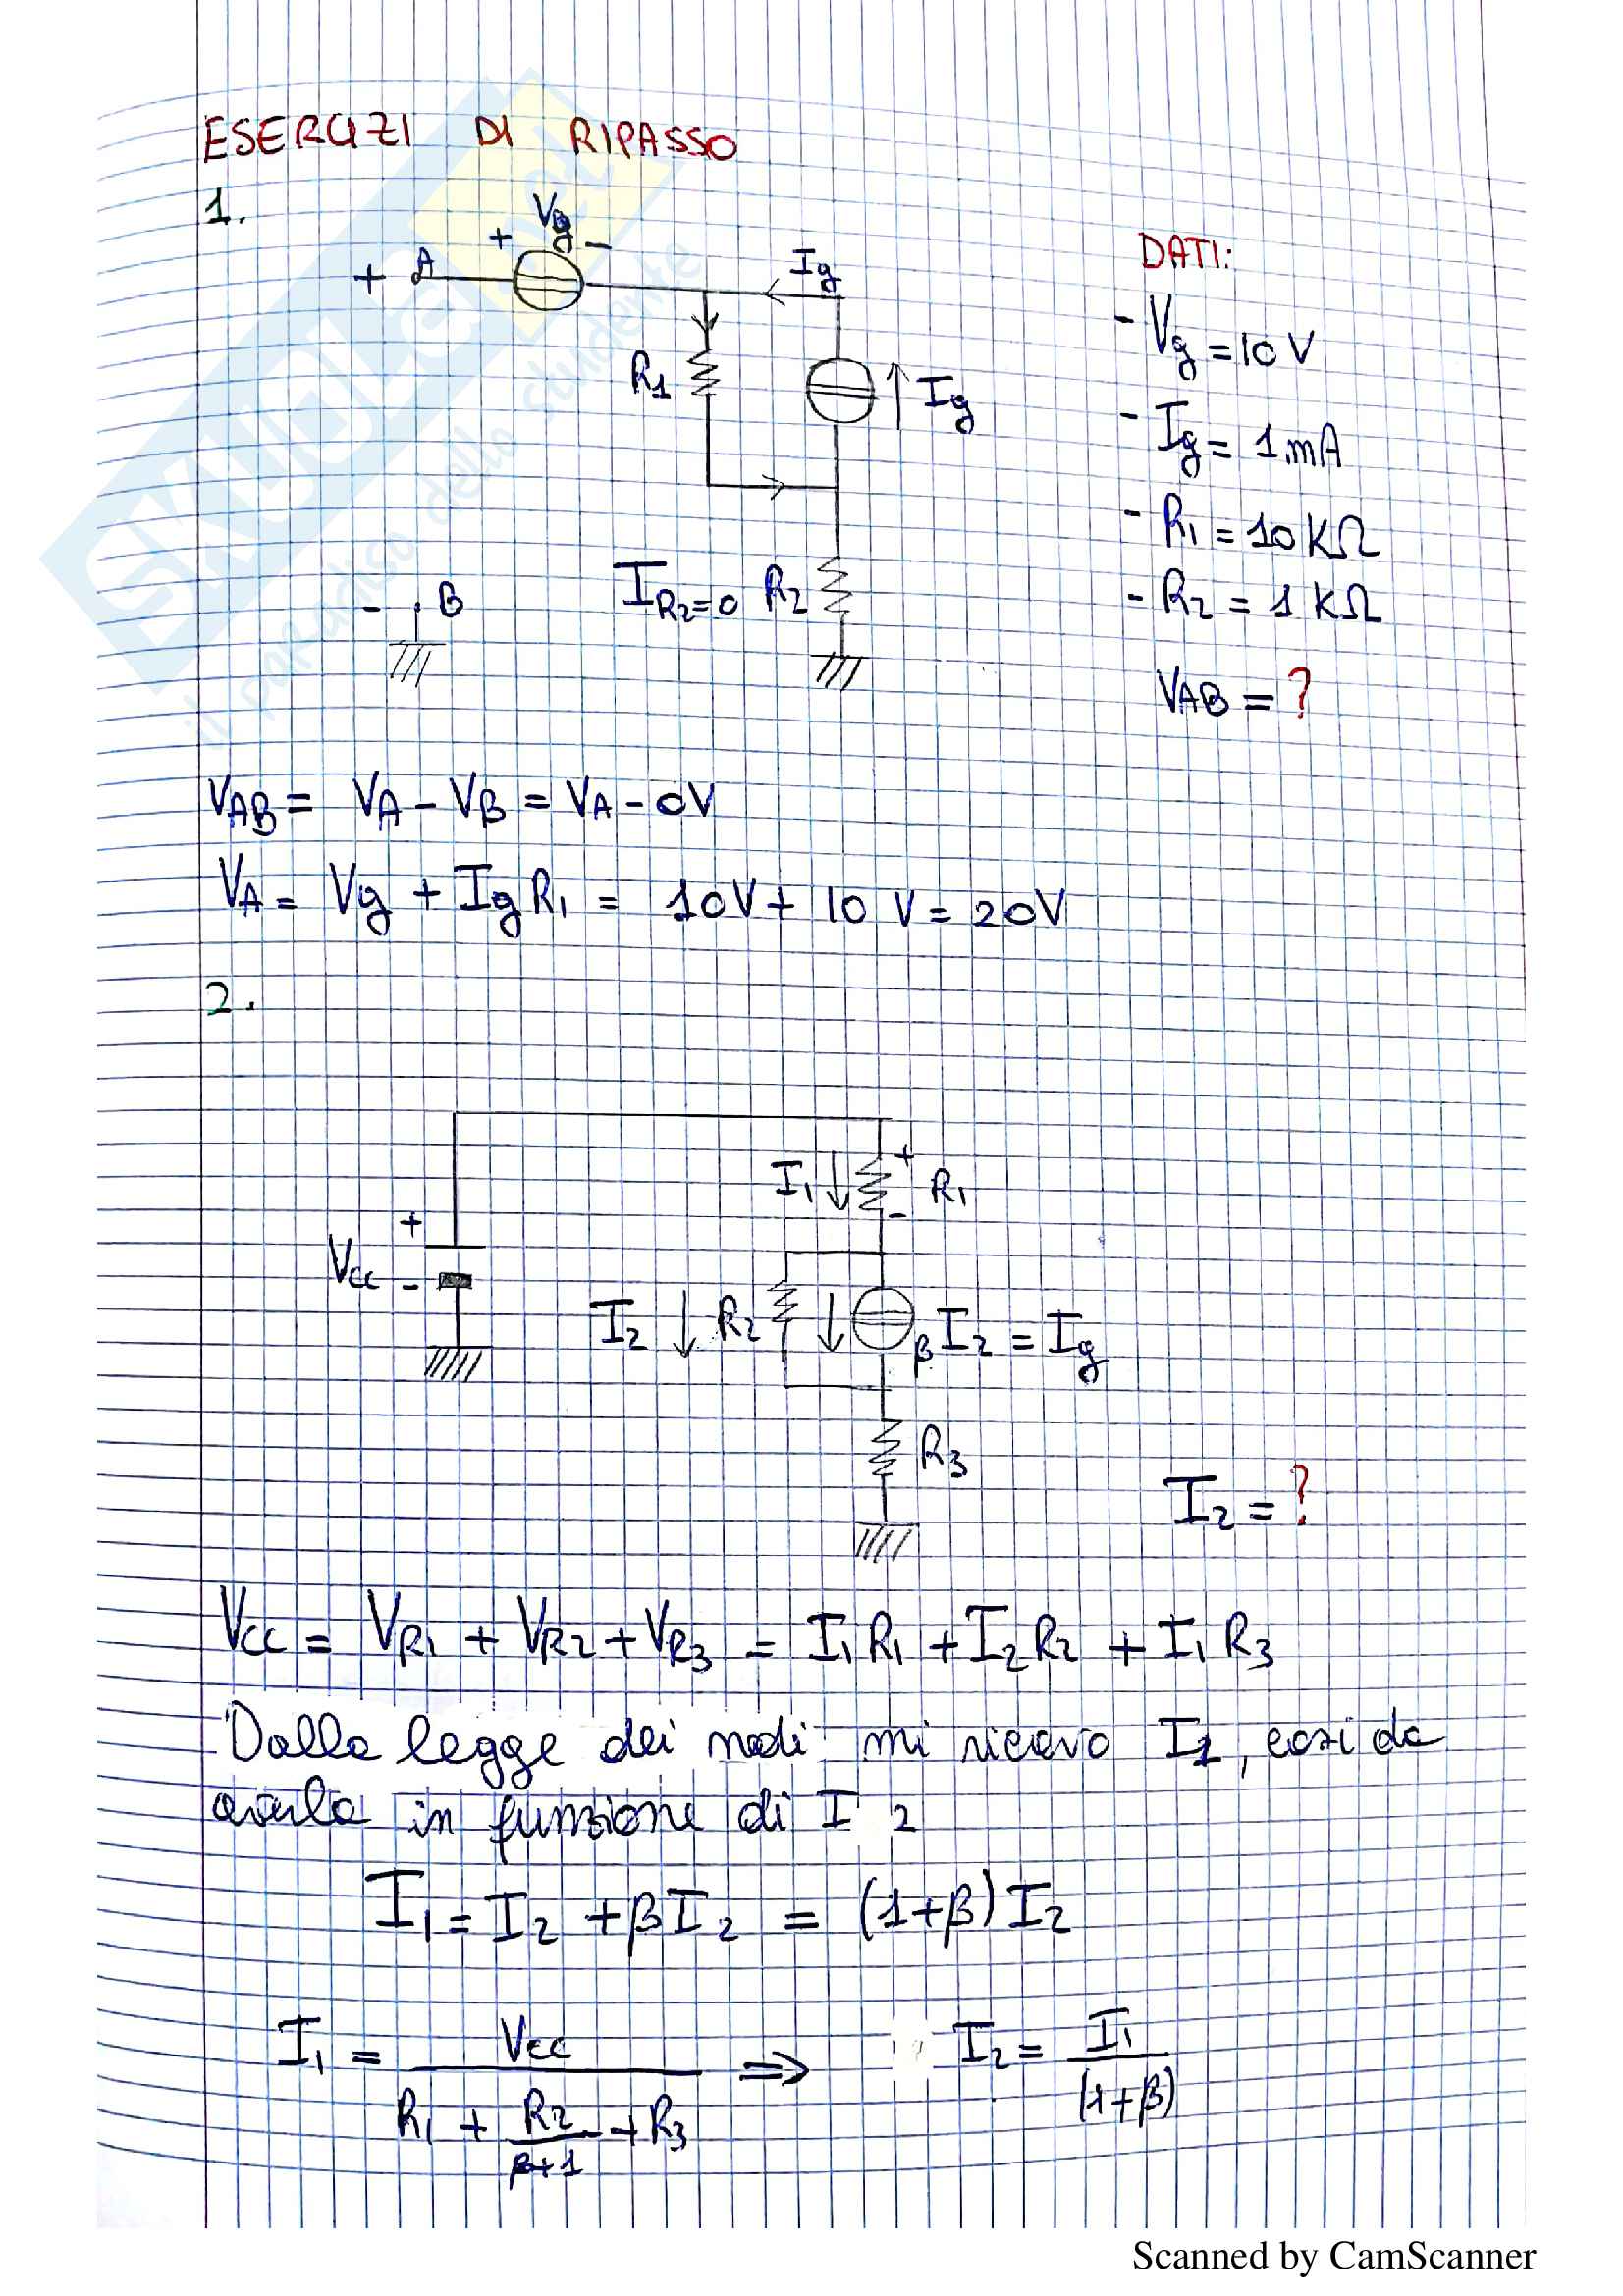 ESERCIZI DI RIPASSO
1.
Vg
+ -
+ A
Ig
R1
Ig
- B
IR2=0 R2
DATI:
- Vg = 10 V
- Ig = 1 mA
- R1 = 10 KΩ
- R2 = 1 KΩ
VAB = ?
VAB = VA - VB = VA - 0V
VA = Vg + Ig R1 = 10V + 10 V = 20V
2.
I1 + R1 -
+
Vcc -
I2 R2 βI2 = Ig
R3
I2 = ?
Vcc = VR1 + VR2 + VR3 = I1 R1 + I2 R2 + I1 R3
Dalla legge dei nodi mi ricavo I1, così da
averla in funzione di I2
I1 = I2 + βI2 = (1+β) I2
I1 = Vcc / (R1 + R2/(β+1) + R3) ⇒ I2 = I1 / (1+β)
SKUOLA.net
il paradiso dello studente
Scanned by CamScanner